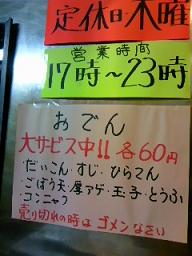 定休日木曜
営業時間
17時～23時
おでん
大サービス中!! 各60円
・だいこん・すじ・ひらてん
・ごぼう天・厚アゲ・玉子・とうふ
・コンニャク
売り切れの時はゴメンなさい